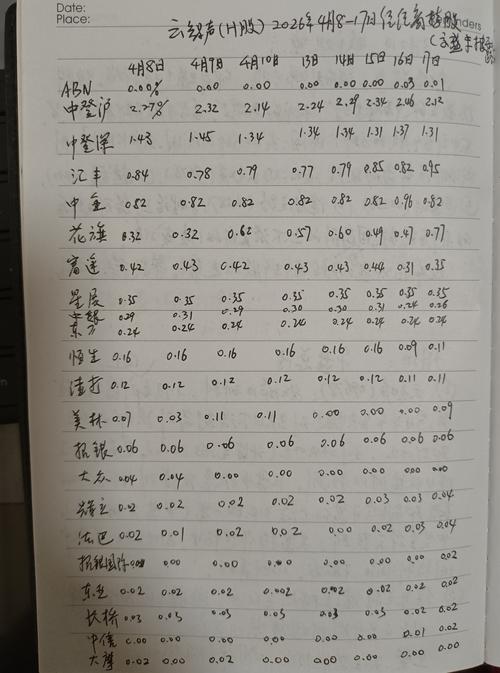 Date:
Place:
云知声(H股)2026年4月8-17日
4月8日 4月9日 4月10日 13日 14日 15日 16日 17日
ABN 0.00% 0.00 0.00 0.00 0.00 0.00 0.03 0.01
中登沪 2.27% 2.32 2.14 2.24 2.29 2.34 2.06 2.12
中登深 1.43 1.45 1.34 1.34 1.34 1.31 1.37 1.31
汇丰 0.84 0.78 0.79 0.77 0.79 0.85 0.82 0.95
中金 0.82 0.82 0.82 0.82 0.82 0.82 0.96 0.82
花旗 0.32 0.32 0.62 0.57 0.60 0.49 0.47 0.77
富途 0.42 0.43 0.42 0.43 0.43 0.44 0.31 0.35
星展 0.35 0.35 0.35 0.35 0.35 0.35 0.35 0.35
中银 0.29 0.31 0.29 0.30 0.30 0.31 0.24 0.26
东方 0.24 0.24 0.24 0.24 0.24 0.24 0.24 0.24
恒生 0.16 0.16 0.16 0.16 0.16 0.16 0.09 0.11
渣打 0.12 0.12 0.12 0.12 0.12 0.12 0.11 0.11
美林 0.07 0.03 0.11 0.11 0.00 0.00 0.00 0.09
招银 0.06 0.06 0.06 0.06 0.06 0.06 0.06 0.06
大众 0.04 0.04 0.00 0.00 0.00 0.00 0.00 0.00
辉立 0.02 0.02 0.02 0.02 0.02 0.03 0.03 0.04
法巴 0.02 0.01 0.02 0.02 0.00 0.02 0.03 0.04
招银国际 0.00 0.00 0.00 0.00 0.00 0.00 0.02
东亚 0.02 0.02 0.02 0.002 0.02 0.02 0.02 0.02
长桥 0.03 0.03 0.03 0.03 0.03 0.03 0.02 0.02
中信 0.00 0.00 0.00 0.00 0.00 0.00 0.01 0.02
大摩 0.02 0.00 0.02 0.00 0.00 0.00 0.00 0.00